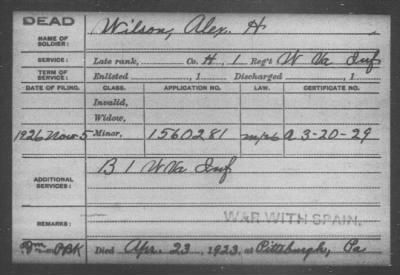 DEAD
NAME OF SOLDIER: Wilson, Alex. H
SERVICE: Late rank, Co. H, 1 Reg't W Va Inf
TERM OF SERVICE: Enlisted , 1 Discharged , 1
DATE OF FILING. CLASS. APPLICATION NO. LAW. CERTIFICATE NO.
Invalid,
Widow,
1926 Nov 5 Minor, 1560281 A 3-20-29
ADDITIONAL SERVICES: B 1 W Va Inf
WAR WITH SPAIN.
REMARKS:
PBK Died Apr. 23, 1923, at Pittsburgh, Pa